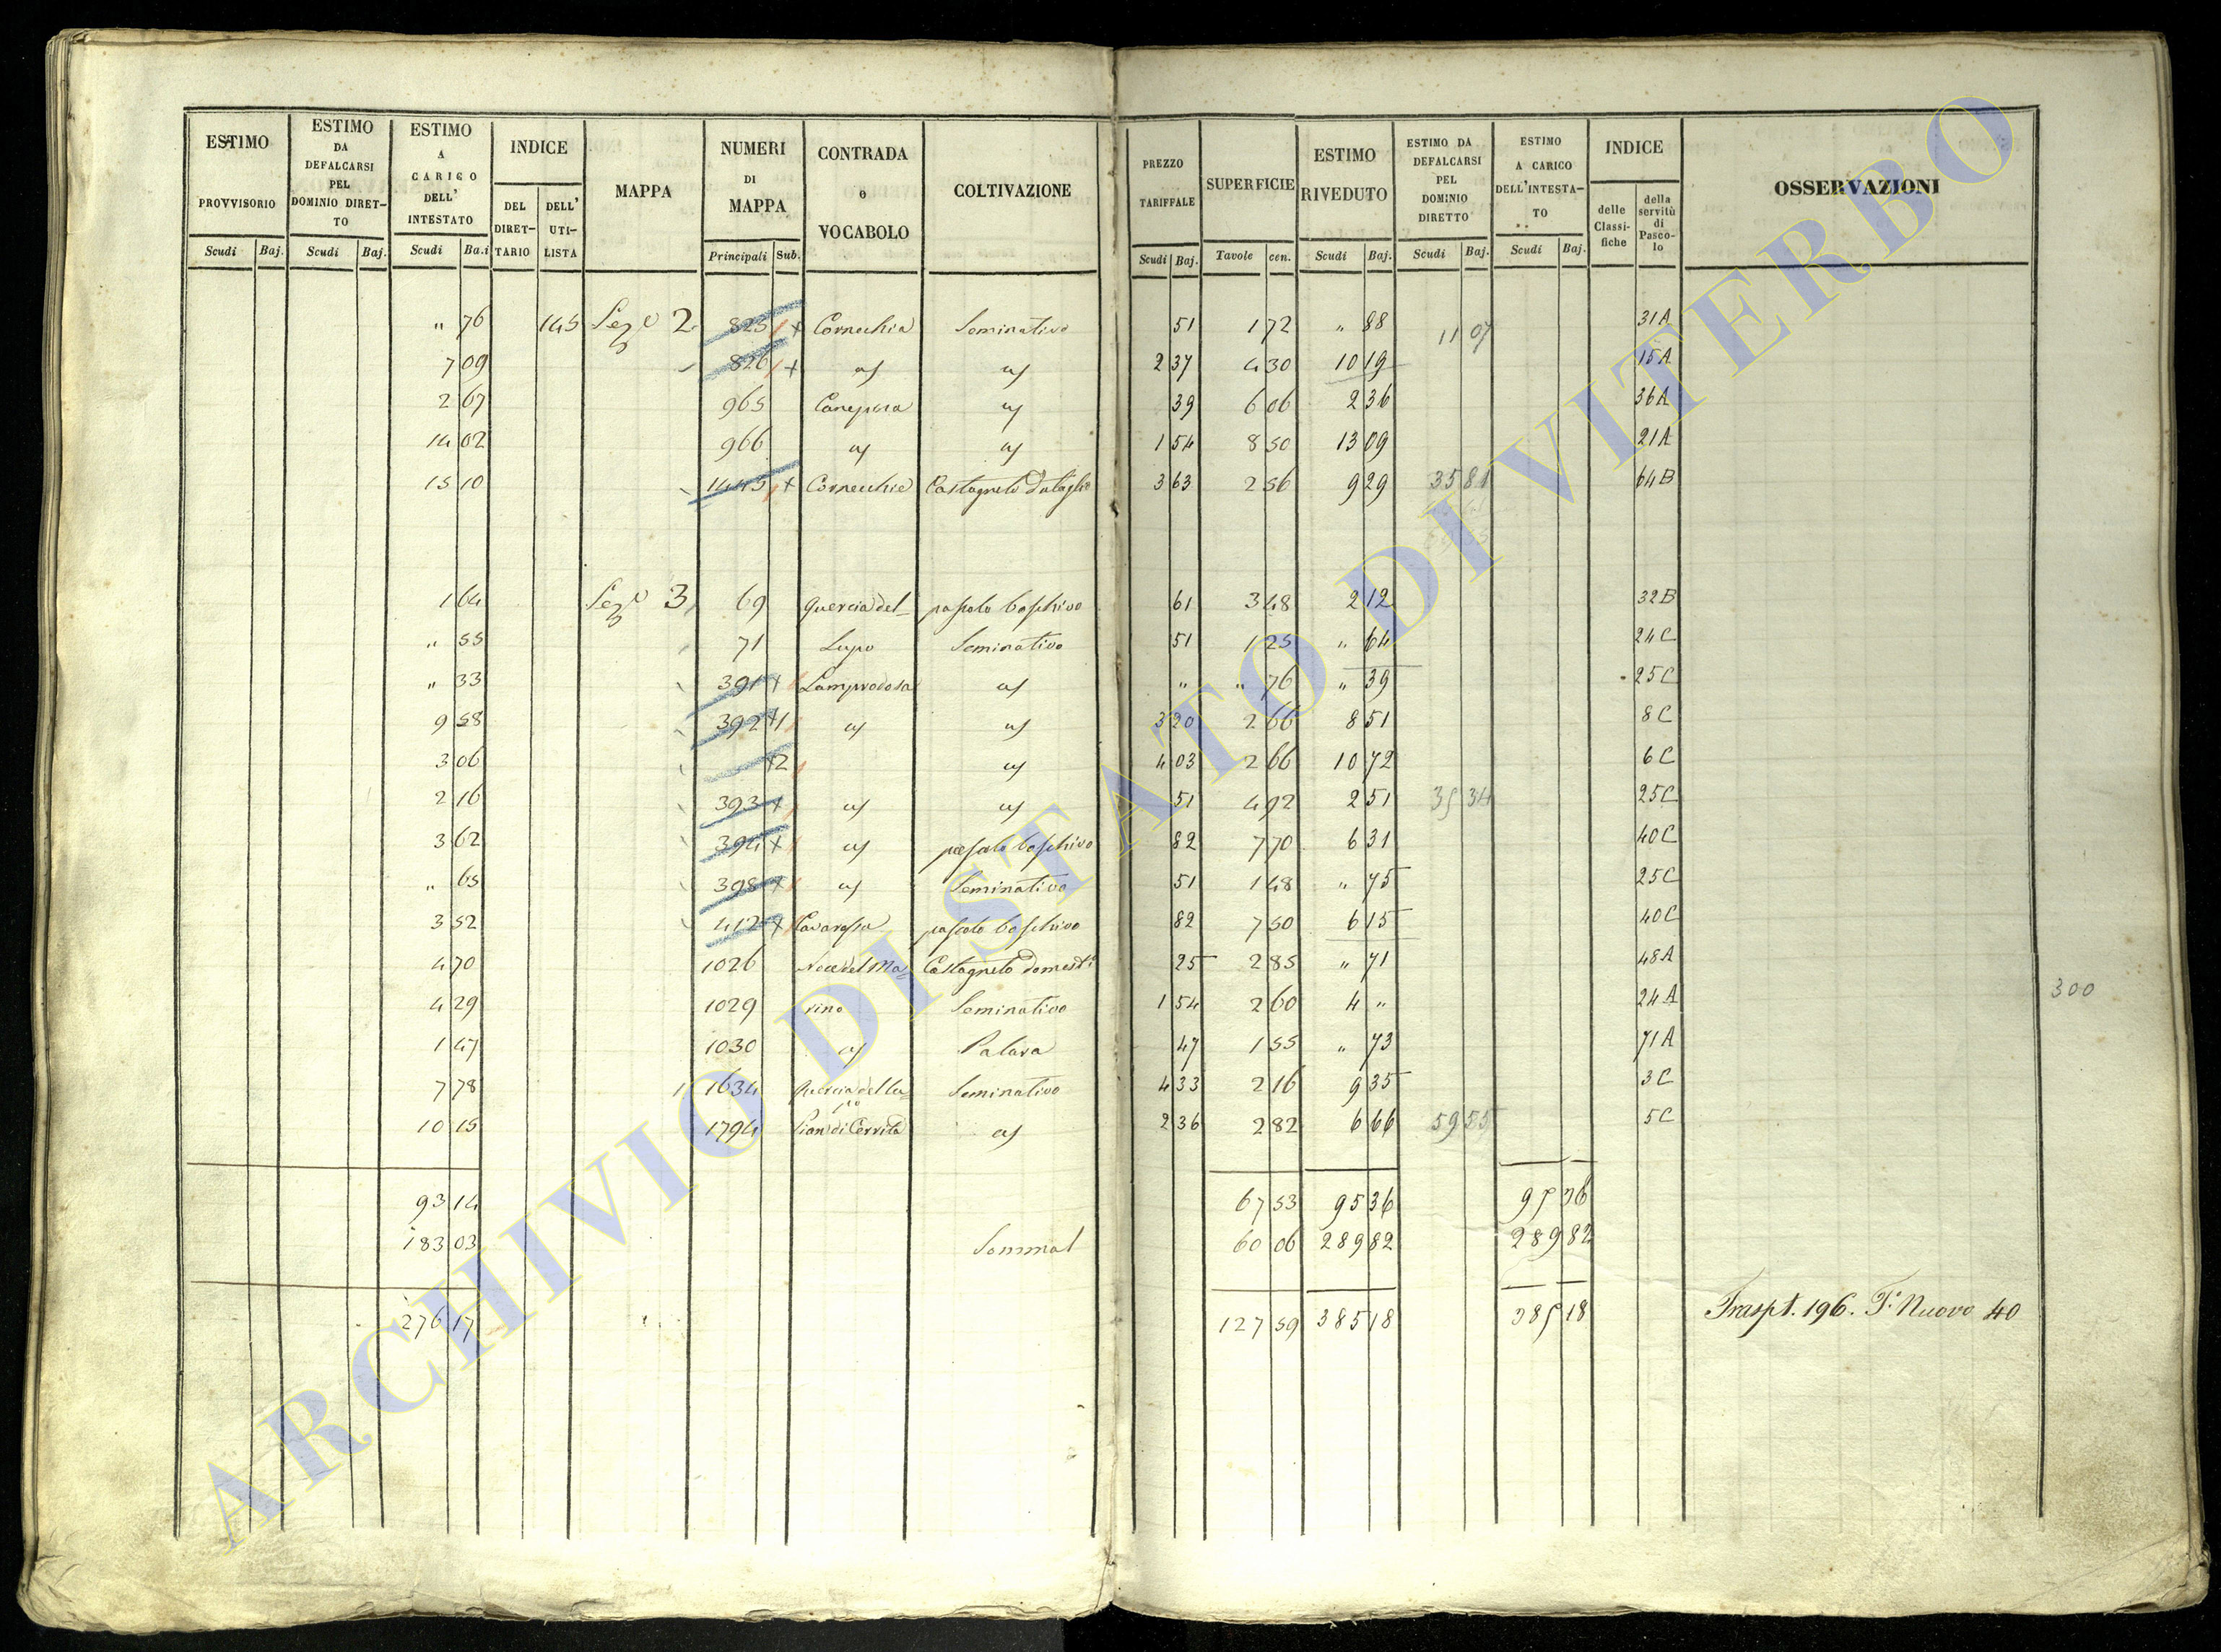 ESTIMO PROVVISORIO Scudi Baj.
ESTIMO DA DEFALCARSI PEL DOMINIO DIRET-TO Scudi Baj.
ESTIMO A CARICO DELL' INTESTATO Scudi Ba.i
INDICE DEL DIRET-TARIO DELL' UTI-LISTA
MAPPA
NUMERI DI MAPPA Principali Sub.
CONTRADA o VOCABOLO
COLTIVAZIONE
PREZZO TARIFFALE Scudi Baj.
SUPERFICIE Tavole cen.
ESTIMO RIVEDUTO Scudi Baj.
ESTIMO DA DEFALCARSI PEL DOMINIO DIRETTO Scudi Baj.
ESTIMO A CARICO DELL'INTESTA-TO Scudi Baj.
INDICE delle Classi-fiche della servitù di Pasco-lo
OSSERVAZIONI
" 76 145 Sez.e 2. 825 + Cornechia Seminativo 51 1 72 " 88 11 07 31A
7 09 826 + us us 2 37 4 30 10 19 15A
2 67 965 Canepina us 39 6 06 2 36 36A
14 02 966 us us 1 54 8 50 13 09 21A
15 10 1445 + Cornecchie Castagneto da taglio 3 63 2 56 9 29 35 81 64B
1 64 Sez.e 3, 69 Quercia del- pascolo boschivo 61 3 48 2 12 32B
" 55 71 Lupo Seminativo 51 1 25 " 64 24C
" 33 391 + us " " 76 " 39 25C
9 58 392 + 1 us us 3 20 2 66 8 51 8C
3 06 + 2 us 4 03 2 66 10 72 6C
2 16 393 + us us 51 4 92 2 51 35 34 25C
3 62 394 + us pascolo boschivo 82 7 70 6 31 40C
" 65 398 + us Seminativo 51 1 48 " 75 25C
3 52 412 + pascolo boschivo 82 7 50 6 15 40C
4 70 1026 Noce del Ma= Castagneto domest.o 25 2 85 " 71 48A
4 29 1029 rino Seminativo 1 54 2 60 4 " 24A
300
1 47 1030 us Palara 47 1 55 " 73 71A
7 78 1634 Quercia del Lu=po Seminativo 4 33 2 16 9 35 3C
10 15 1794 Pian di us 2 36 2 82 6 66 59 55 5C
93 14 67 53 95 36 95 36
183 03 Sommal 60 06 289 82 289 82
276 17 127 59 385 18 385 18 Traspt. 196. F. Nuovo 40
ARCHIVIO DI STATO DI VITERBO